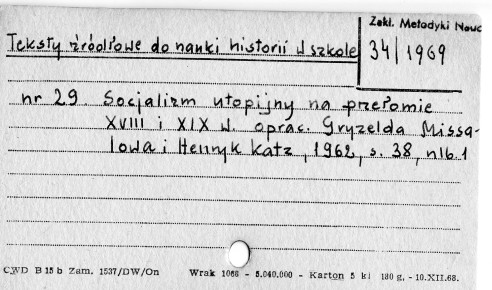 Zakł. Metodyki Nauc
Teksty źródłowe do nauki historii w szkole
34/1969
nr 29. Socjalizm utopijny na przełomie
XVIII i XIX w. oprac. Gryzelda Missa-
lowa i Henryk Katz, 1962, s. 38, nlb. 1
CWD B 15 b Zam. 1537/DW/On Wrak 1068 - 5.040.000 - Karton 5 kl 180 g. - 10.XII.68.